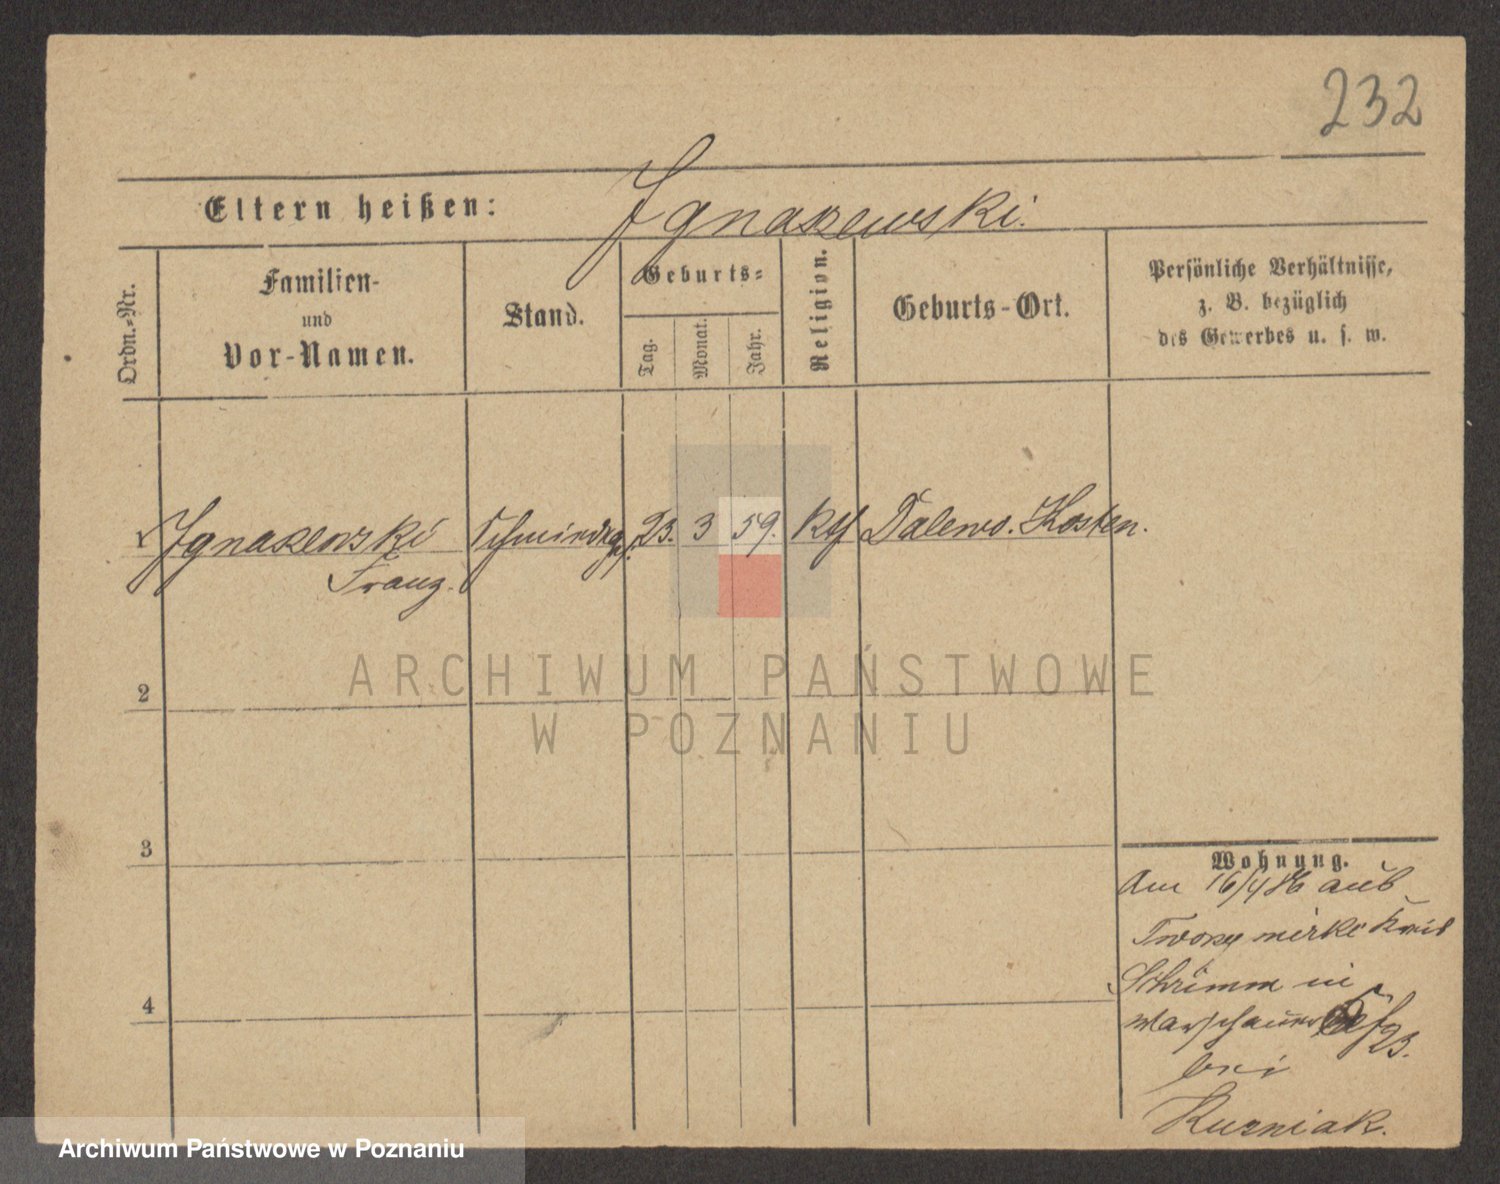 232
Eltern heißen: Ignaszewski.
Ordn.-Nr.
Familien-
und
Vor-Namen.
Stand.
Geburts-
Tag.
Monat.
Jahr.
Religion.
Geburts-Ort.
Persönliche Verhältnisse,
z. B. bezüglich
des Gewerbes u. s. w.
1 Ignaszewski Schmiedeges. 23. 3 59. kth Dalewo. Kosten.
Franz.
2
3
4
Wohnung.
Am 16/4 86 aus
Kreis
Schrimm in
23.
bei
Kuzniak.
ARCHIWUM PAŃSTWOWE
W POZNANIU
Archiwum Państwowe w Poznaniu